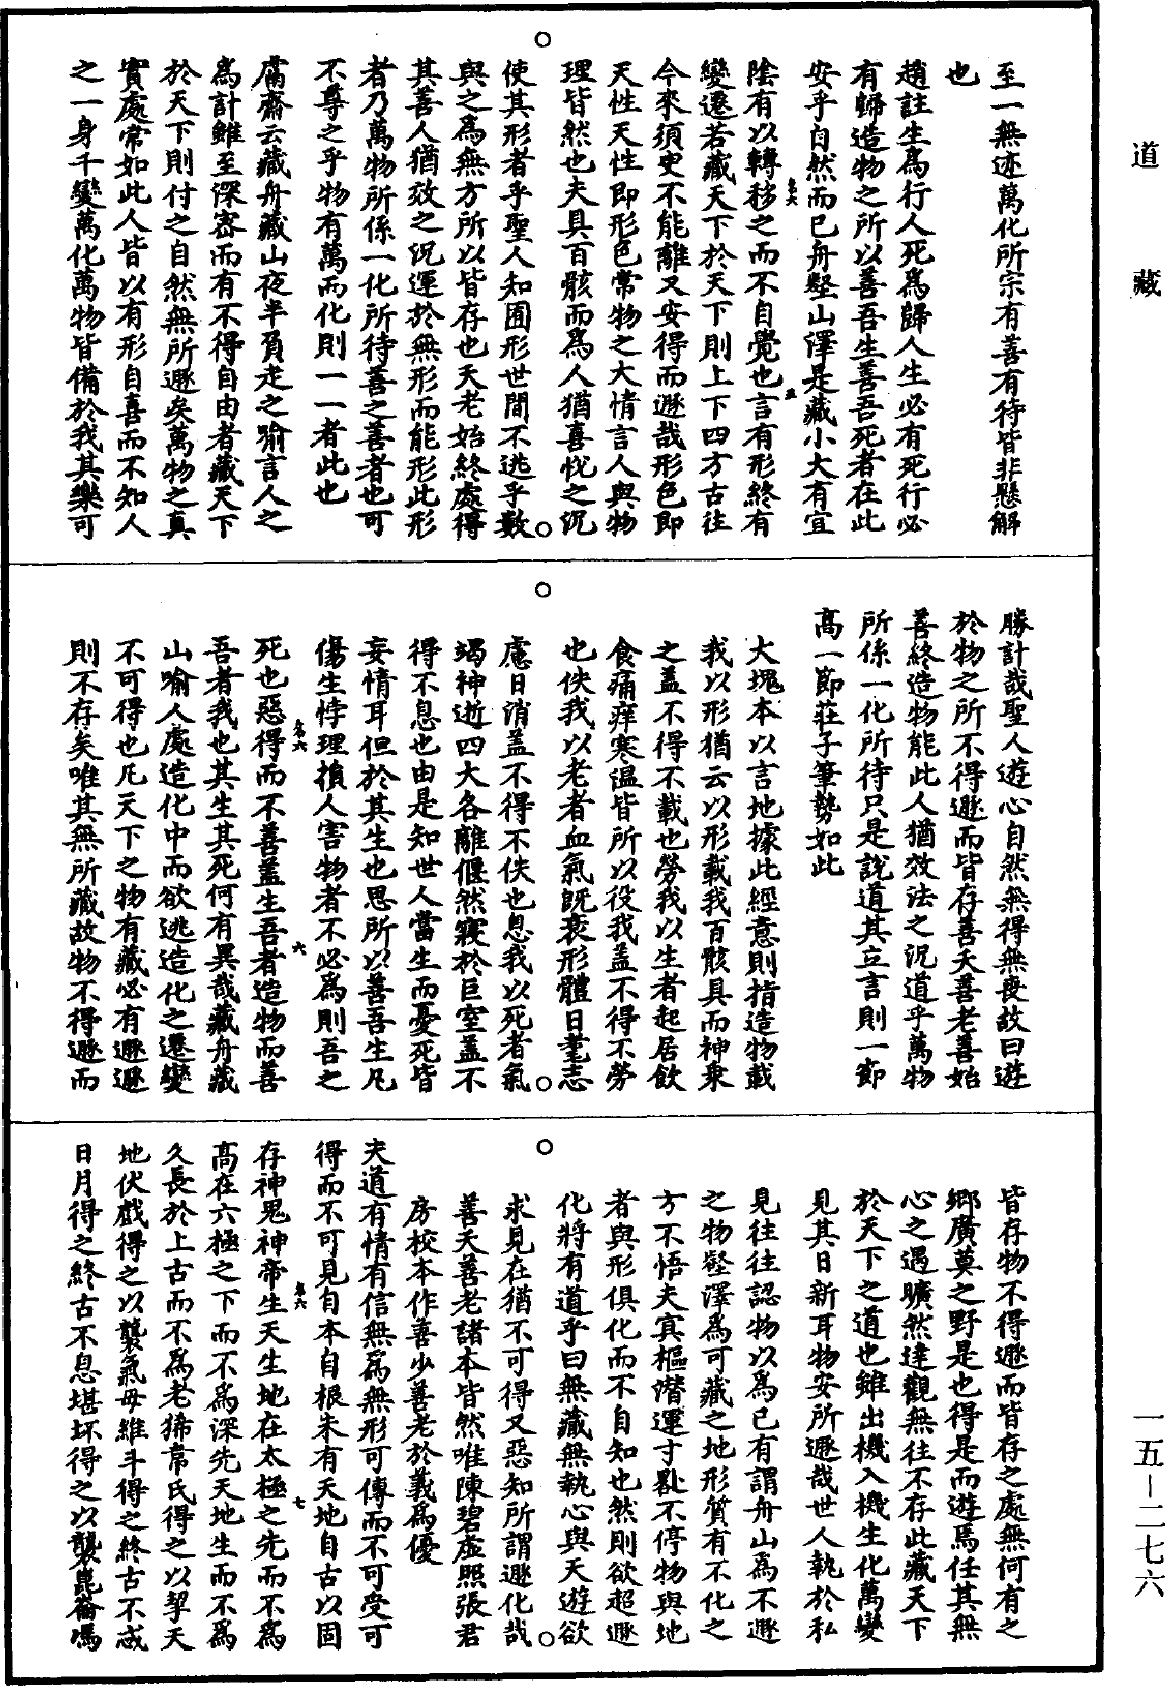 道藏
至一無迹萬化所宗有善有待皆非懸解
也
趙註生爲行人死爲歸人生必有死行必
有歸造物之所以善吾生善吾死者在此
安乎自然而已舟壑山澤是藏小大有宜
陰有以轉移之而不自覺也言有形終有
變遷若藏天下於天下則上下四方古往
今來須臾不能離又安得而遯哉形色即
天性天性即形色常物之大情言人與物
理皆然也夫具百骸而爲人猶喜悅之況
使其形者乎聖人知囿形世間不逃乎數
與之爲無方所以皆存也夭老始終處得
其善人猶效之況運於無形而能形此形
者乃萬物所係一化所待善之善者也可
不尊之乎物有萬而化則一一者此也
鬳齋云藏舟藏山夜半負走之喻言人之
爲計雖至深密而有不得自由者藏天下
於天下則付之自然無所遯矣萬物之真
實處常如此人皆以有形自喜而不知人
之一身千變萬化萬物皆備於我其樂可
勝計哉聖人遊心自然無得無喪故曰遊
於物之所不得遯而皆存善夭善老善始
善終造物能此人猶效法之況道乎萬物
所係一化所待只是說道其立言則一節
高一節莊子筆勢如此
大塊本以言地據此經意則指造物載
我以形猶云以形載我百骸具而神乗
之蓋不得不載也勞我以生者起居飲
食痛痒寒溫皆所以役我蓋不得不勞
也佚我以老者血氣旣衰形體日耄志
慮日消蓋不得不佚也息我以死者氣
竭神逝四大各離偃然寢於巨室蓋不
得不息也由是知世人當生而憂死皆
妄情耳但於其生也思所以善吾生凡
傷生悖理損人害物者不必爲則吾之
死也惡得而不善蓋生吾者造物而善
吾者我也其生其死何有異哉藏舟藏
山喻人處造化中而欲逃造化之遷變
不可得也凡天下之物有藏必有遯遯
則不存矣唯其無所藏故物不得遯而
皆存物不得遯而皆存之處無何有之
鄉廣莫之野是也得是而遊焉任其無
心之遇曠然達觀無往不存此藏天下
於天下之道也雖出機入機生化萬變
見其日新耳物安所遯哉世人執於私
見往往認物以爲已有謂舟山爲不遯
之物壑澤爲可藏之地形質有不化之
方不悟夫冥樞潜運寸晷不停物與地
者與形俱化而不自知也然則欲超遯
化將有道乎曰無藏無執心與天遊欲
求見在猶不可得又惡知所謂遯化哉
善夭善老諸本皆然唯陳碧虛照張君
房校本作善少善老於義爲優
夫道有情有信無爲無形可傳而不可受可
得而不可見自本自根未有天地自古以固
存神鬼神帝生天生地在太極之先而不爲
高在六極之下而不爲深先天地生而不爲
久長於上古而不爲老狶韋氏得之以挈天
地伏戲得之以襲氣母維斗得之終古不忒
日月得之終古不息堪坏得之以襲崑崙馮
一五－二七六